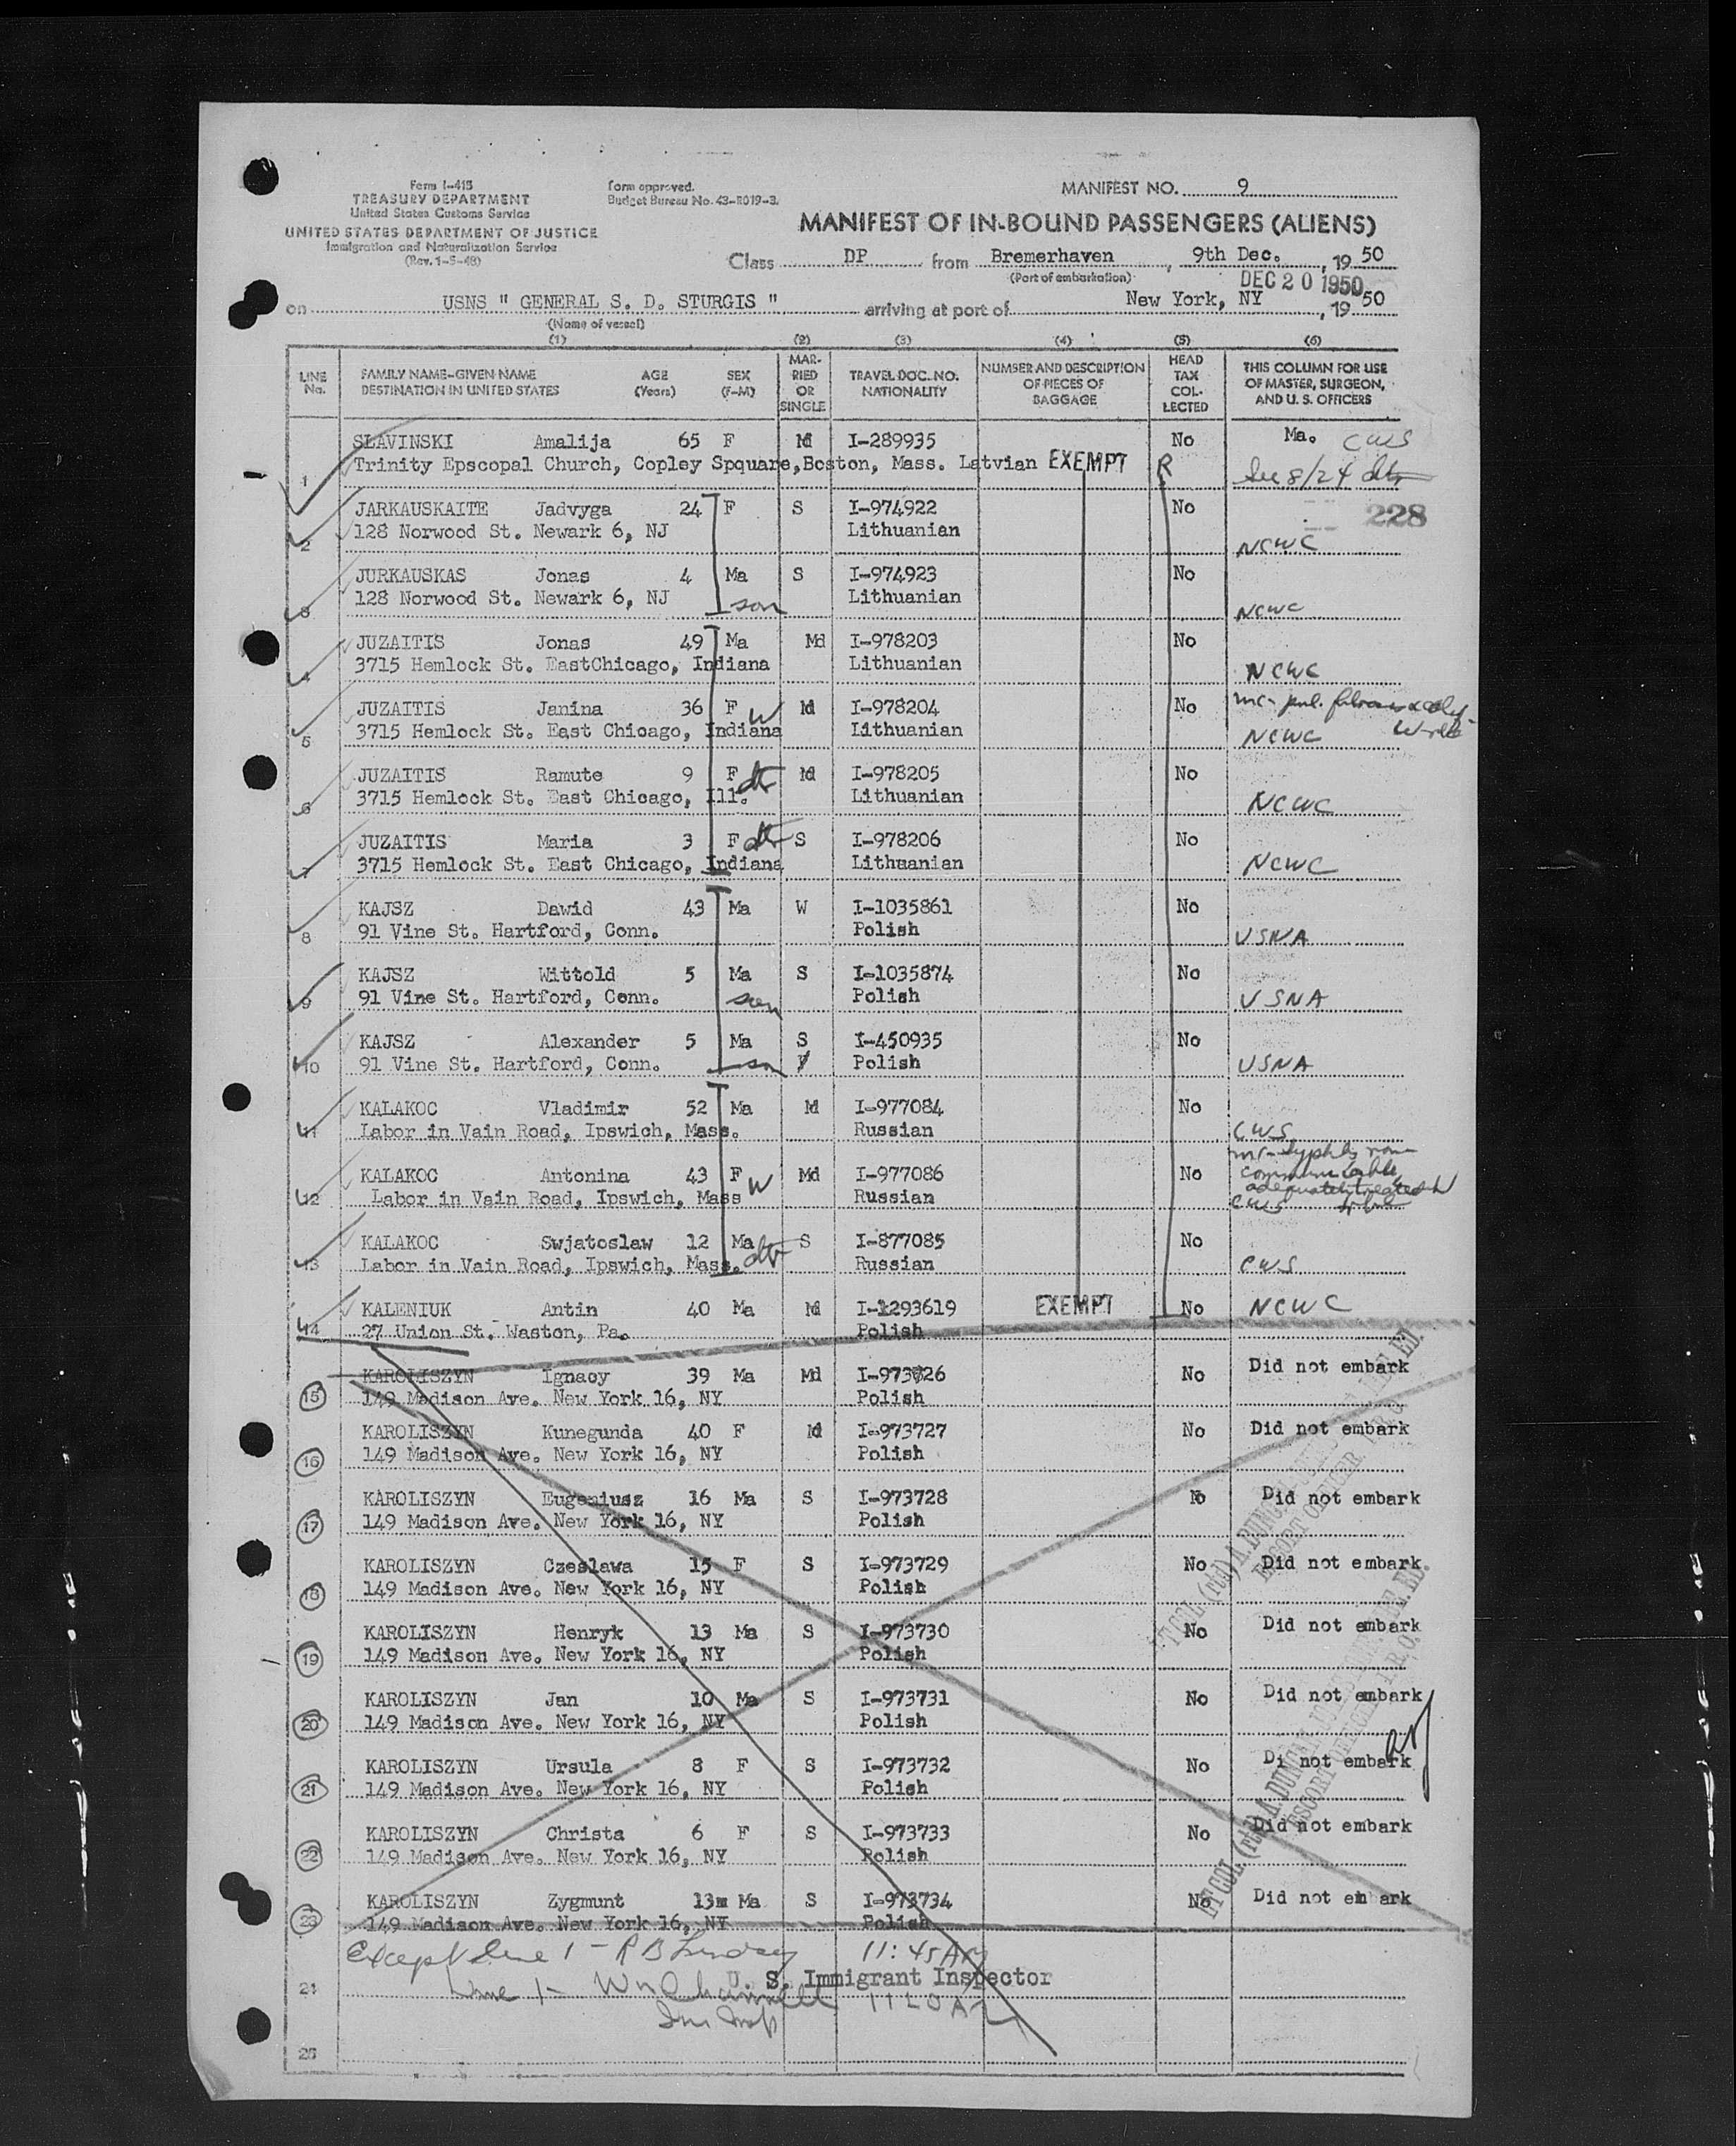 Form I-415
TREASURY DEPARTMENT
United States Customs Service
UNITED STATES DEPARTMENT OF JUSTICE
Immigration and Naturalization Service
(Rev. 1-5-48)
form approved.
Budget Bureau No. 43-R019-3.
MANIFEST NO. 9
MANIFEST OF IN-BOUND PASSENGERS (ALIENS)
Class DP from Bremerhaven, 9th Dec., 19 50
(Port of embarkation) DEC 20 1950
on USNS " GENERAL S. D. STURGIS " arriving at port of New York, NY, 19 50
(Name of vessel)
(1) (2) (3) (4) (5) (6)
LINE No. FAMILY NAME-GIVEN NAME DESTINATION IN UNITED STATES AGE (Years) SEX (F-M) MARRIED OR SINGLE TRAVEL DOC. NO. NATIONALITY NUMBER AND DESCRIPTION OF PIECES OF BAGGAGE HEAD TAX COLLECTED THIS COLUMN FOR USE OF MASTER, SURGEON, AND U. S. OFFICERS
SLAVINSKI Amalija 65 F Md I-289935 No Ma. CWS
1 Trinity Epscopal Church, Copley Spquare, Boston, Mass. Latvian EXEMPT R 8/24
JARKAUSKAITE Jadvyga 24 F S I-974922 No 228
2 128 Norwood St. Newark 6, NJ Lithuanian NCWC
JURKAUSKAS Jonas 4 Ma S I-974923 No
3 128 Norwood St. Newark 6, NJ son Lithuanian NCWC
JUZAITIS Jonas 49 Ma Md I-978203 No
4 3715 Hemlock St. EastChicago, Indiana Lithuanian NCWC
JUZAITIS Janina 36 F W Md I-978204 No
5 3715 Hemlock St. East Chicago, Indiana Lithuanian NCWC
JUZAITIS Ramute 9 F dtr Md I-978205 No
6 3715 Hemlock St. East Chicago, Ill. Lithuanian NCWC
JUZAITIS Maria 3 F dtr S I-978206 No
7 3715 Hemlock St. East Chicago, Indiana Lithuanian NCWC
KAJSZ Dawid 43 Ma W I-1035861 No
8 91 Vine St. Hartford, Conn. Polish USNA
KAJSZ Wittold 5 Ma S I-1035874 No
9 91 Vine St. Hartford, Conn. son Polish USNA
KAJSZ Alexander 5 Ma S I-450935 No
10 91 Vine St. Hartford, Conn. son Polish USNA
KALAKOC Vladimir 52 Ma Md I-977084 No
11 Labor in Vain Road, Ipswich, Mass. Russian CWS
KALAKOC Antonina 43 F W Md I-977086 No mc-syphilis non communicable adequately treated
12 Labor in Vain Road, Ipswich, Mass Russian CWS
KALAKOC Swjatoslaw 12 Ma dtr S I-877085 No
13 Labor in Vain Road, Ipswich, Mass. Russian CWS
KALENIUK Antin 40 Ma Md I-1293619 EXEMPT No NCWC
14 27 Union St. Waston, Pa. Polish
KAROLISZYN Ignacy 39 Ma Md I-973726 No Did not embark
15 149 Madison Ave. New York 16, NY Polish
KAROLISZYN Kunegunda 40 F Md I-973727 No Did not embark
16 149 Madison Ave. New York 16, NY Polish
KAROLISZYN Eugeniusz 16 Ma S I-973728 No Did not embark
17 149 Madison Ave. New York 16, NY Polish
KAROLISZYN Czeslawa 15 F S I-973729 No Did not embark
18 149 Madison Ave. New York 16, NY Polish
KAROLISZYN Henryk 13 Ma S I-973730 No Did not embark
19 149 Madison Ave. New York 16, NY Polish
KAROLISZYN Jan 10 Ma S I-973731 No Did not embark
20 149 Madison Ave. New York 16, NY Polish
KAROLISZYN Ursula 8 F S I-973732 No Di not embark
21 149 Madison Ave. New York 16, NY Polish
KAROLISZYN Christa 6 F S I-973733 No Did not embark
22 149 Madison Ave. New York 16, NY Polish
KAROLISZYN Zygmunt 13m Ma S I-973734 No Did not em ark
23 149 Madison Ave. New York 16, NY Polish
Except line 1 - R B Lindsey 11:45 AM
24 U. S. Immigrant Inspector
Line 1-
25